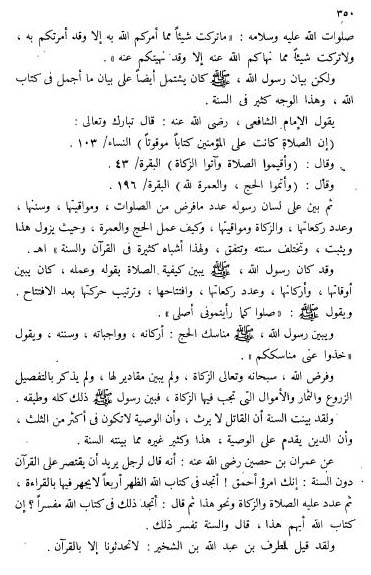 ٣٥٠
صلوات الله عليه وسلامه : «ماتركت شيئاً مما أمركم الله به إلا وقد أمرتكم به ،
ولاتركت شيئاً مما نهاكم الله عنه إلا وقد نهيتكم عنه » .
ولكن بيان رسول الله ، ﷺ كان يشتمل أيضاً على بيان ما أجمل فى كتاب
الله ، وهذا الوجه كثير فى السنة .
يقول الإمام الشافعى ، رضى الله عنه : قال تبارك وتعالى :
(إن الصلاة كانت على المؤمنين كتاباً موقوتاً) النساء/ ١٠٣ .
وقال : (وأقيموا الصلاة وآتوا الزكاة) البقرة/ ٤٣ .
وقال : (وأتموا الحج ، والعمرة لله) البقرة/ ١٩٦ .
ثم بين على لسان رسوله عدد مافرض من الصلوات ، ومواقيتها ، وسننها ،
وعدد ركعاتها ، والزكاة ومواقيتها ، وكيف عمل الحج والعمرة ، وحيث يزول هذا
ويثبت ، وتختلف سنته وتتفق ، ولهذا أشباه كثيرة فى القرآن والسنة » اهـ .
وقد كان رسول الله ، ﷺ يبين كيفية الصلاة بقوله وعمله ، كان يبين
أوقاتها ، وأركانها ، وعدد ركعاتها ، وافتتاحها ، وترتيب حركتها بعد الافتتاح .
ويقول ﷺ : « صلوا كما رأيتمونى أصلى » .
ويبين رسول الله ، ﷺ مناسك الحج : أركانه ، وواجباته ، وسننه ، ويقول
«خذوا عنى مناسككم » .
وفرض الله ، سبحانه وتعالى الزكاة ، ولم يبين مقادير لها ، ولم يذكر بالتفصيل
الزروع والثمار والأموال التى تجب فيها الزكاة ، فبين رسول ﷺ ذلك كله وطبقه .
ولقد بينت السنة أن القاتل لا يرث ، وأن الوصية لاتكون فى أكثر من الثلث ،
وأن الدين يقدم على الوصية ، هذا وكثير غيره مما بينته السنة .
عن عمران بن حصين رضى الله عنه : أنه قال لرجل يريد أن يقتصر على القرآن
دون السنة : إنك امرؤ أحمق ! أتجد فى كتاب الله الظهر أربعاً لايجهر فيها بالقراءة ،
ثم عدد عليه الصلاة والزكاة ونحو هذا ثم قال : أتجد ذلك فى كتاب الله مفسراً ؟ إن
كتاب الله أبهم هذا ، قال والسنة تفسر ذلك .
ولقد قيل لمطرف بن عبد الله بن الشخير : لاتحدثونا إلا بالقرآن .